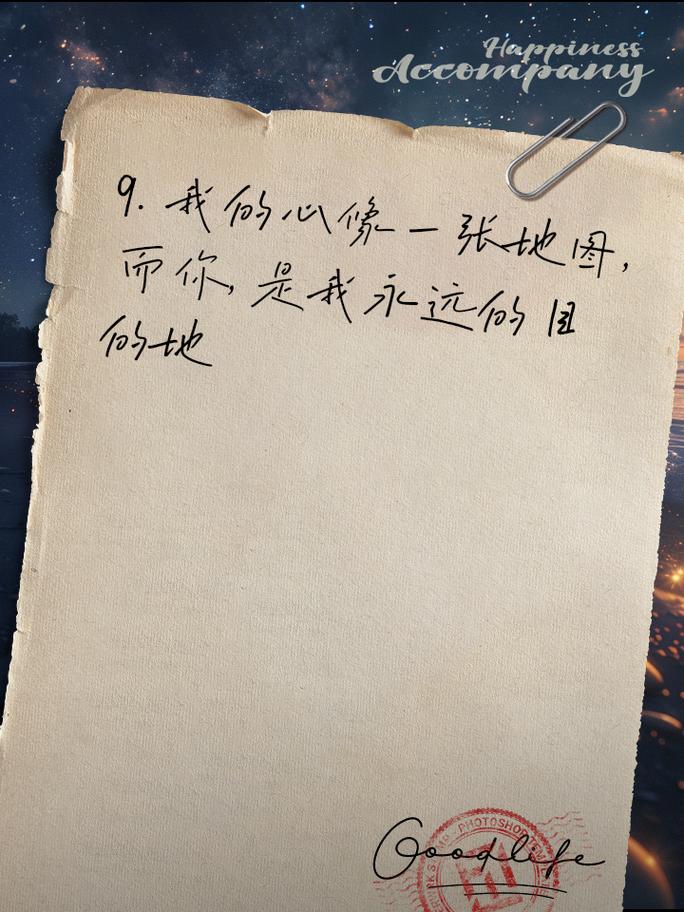 Happiness
Accompany
9. 我的心像一张地图，
而你，是我永远的目
的地
PHOTOSHOP
Goodlife